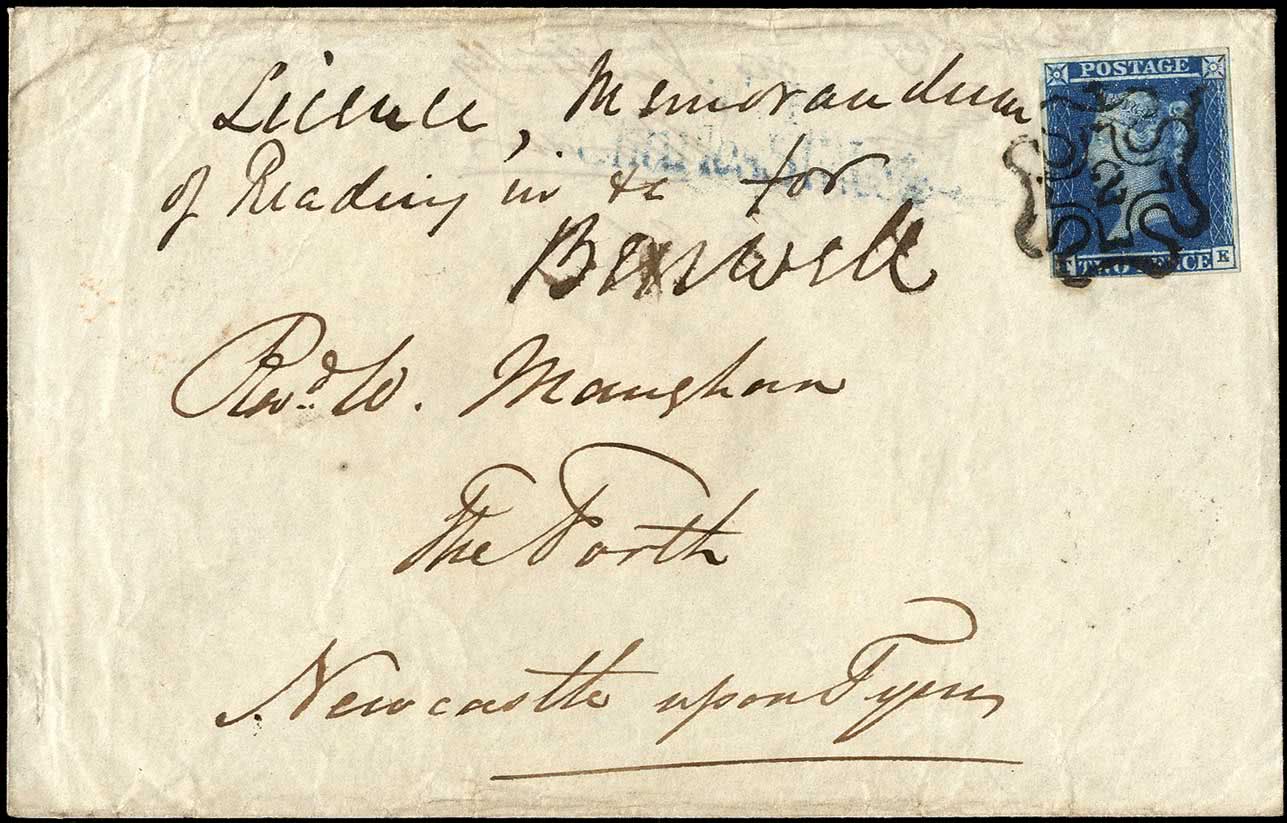 Licence, Memorandum
of Reading in &c for
Benwell
Revd. W. Maughan
The Forth
Newcastle upon Tyne
POSTAGE
2
TWO PENCE
K